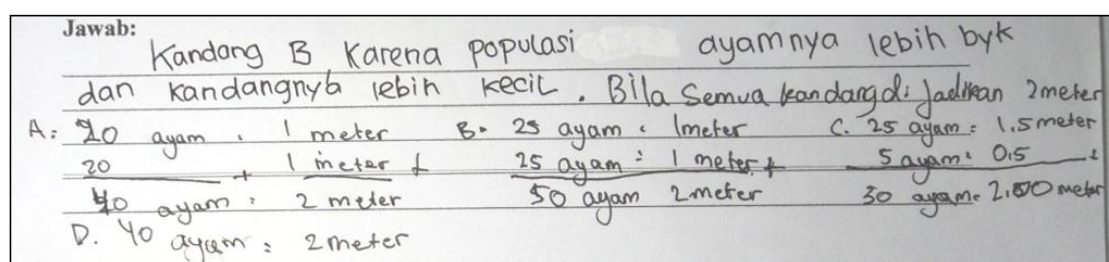 Jawab:
Kandang B Karena populasi ayamnya lebih byk
dan kandangnya lebih kecil. Bila Semua kandang di jadikan 2 meter
A: 20 ayam : 1 meter B. 25 ayam : 1 meter C. 25 ayam : 1.5 meter
20 + 1 meter + 25 ayam : 1 meter + 5 ayam : 0.5 +
40 ayam : 2 meter 50 ayam 2 meter 30 ayam : 2.00 meter
D. 40 ayam : 2 meter